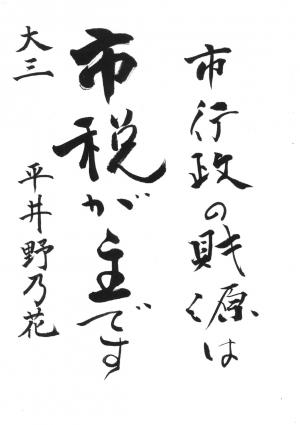 市行政の財源は
市税が主です
大三
平井野乃花